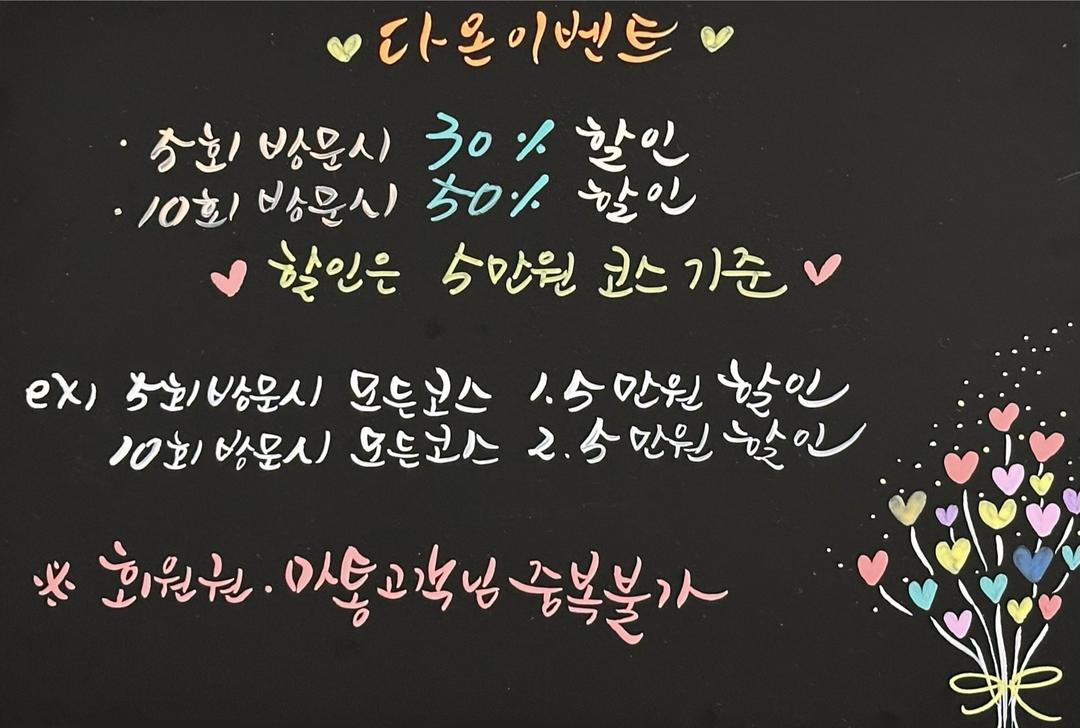 다온이벤트
· 5회 방문시 30% 할인
· 10회 방문시 50% 할인
할인은 5만원 코스 기준
ex) 5회방문시 모든코스 1.5만원 할인
10회방문시 모든코스 2.5만원 할인
※ 회원권.마통고객님 중복불가